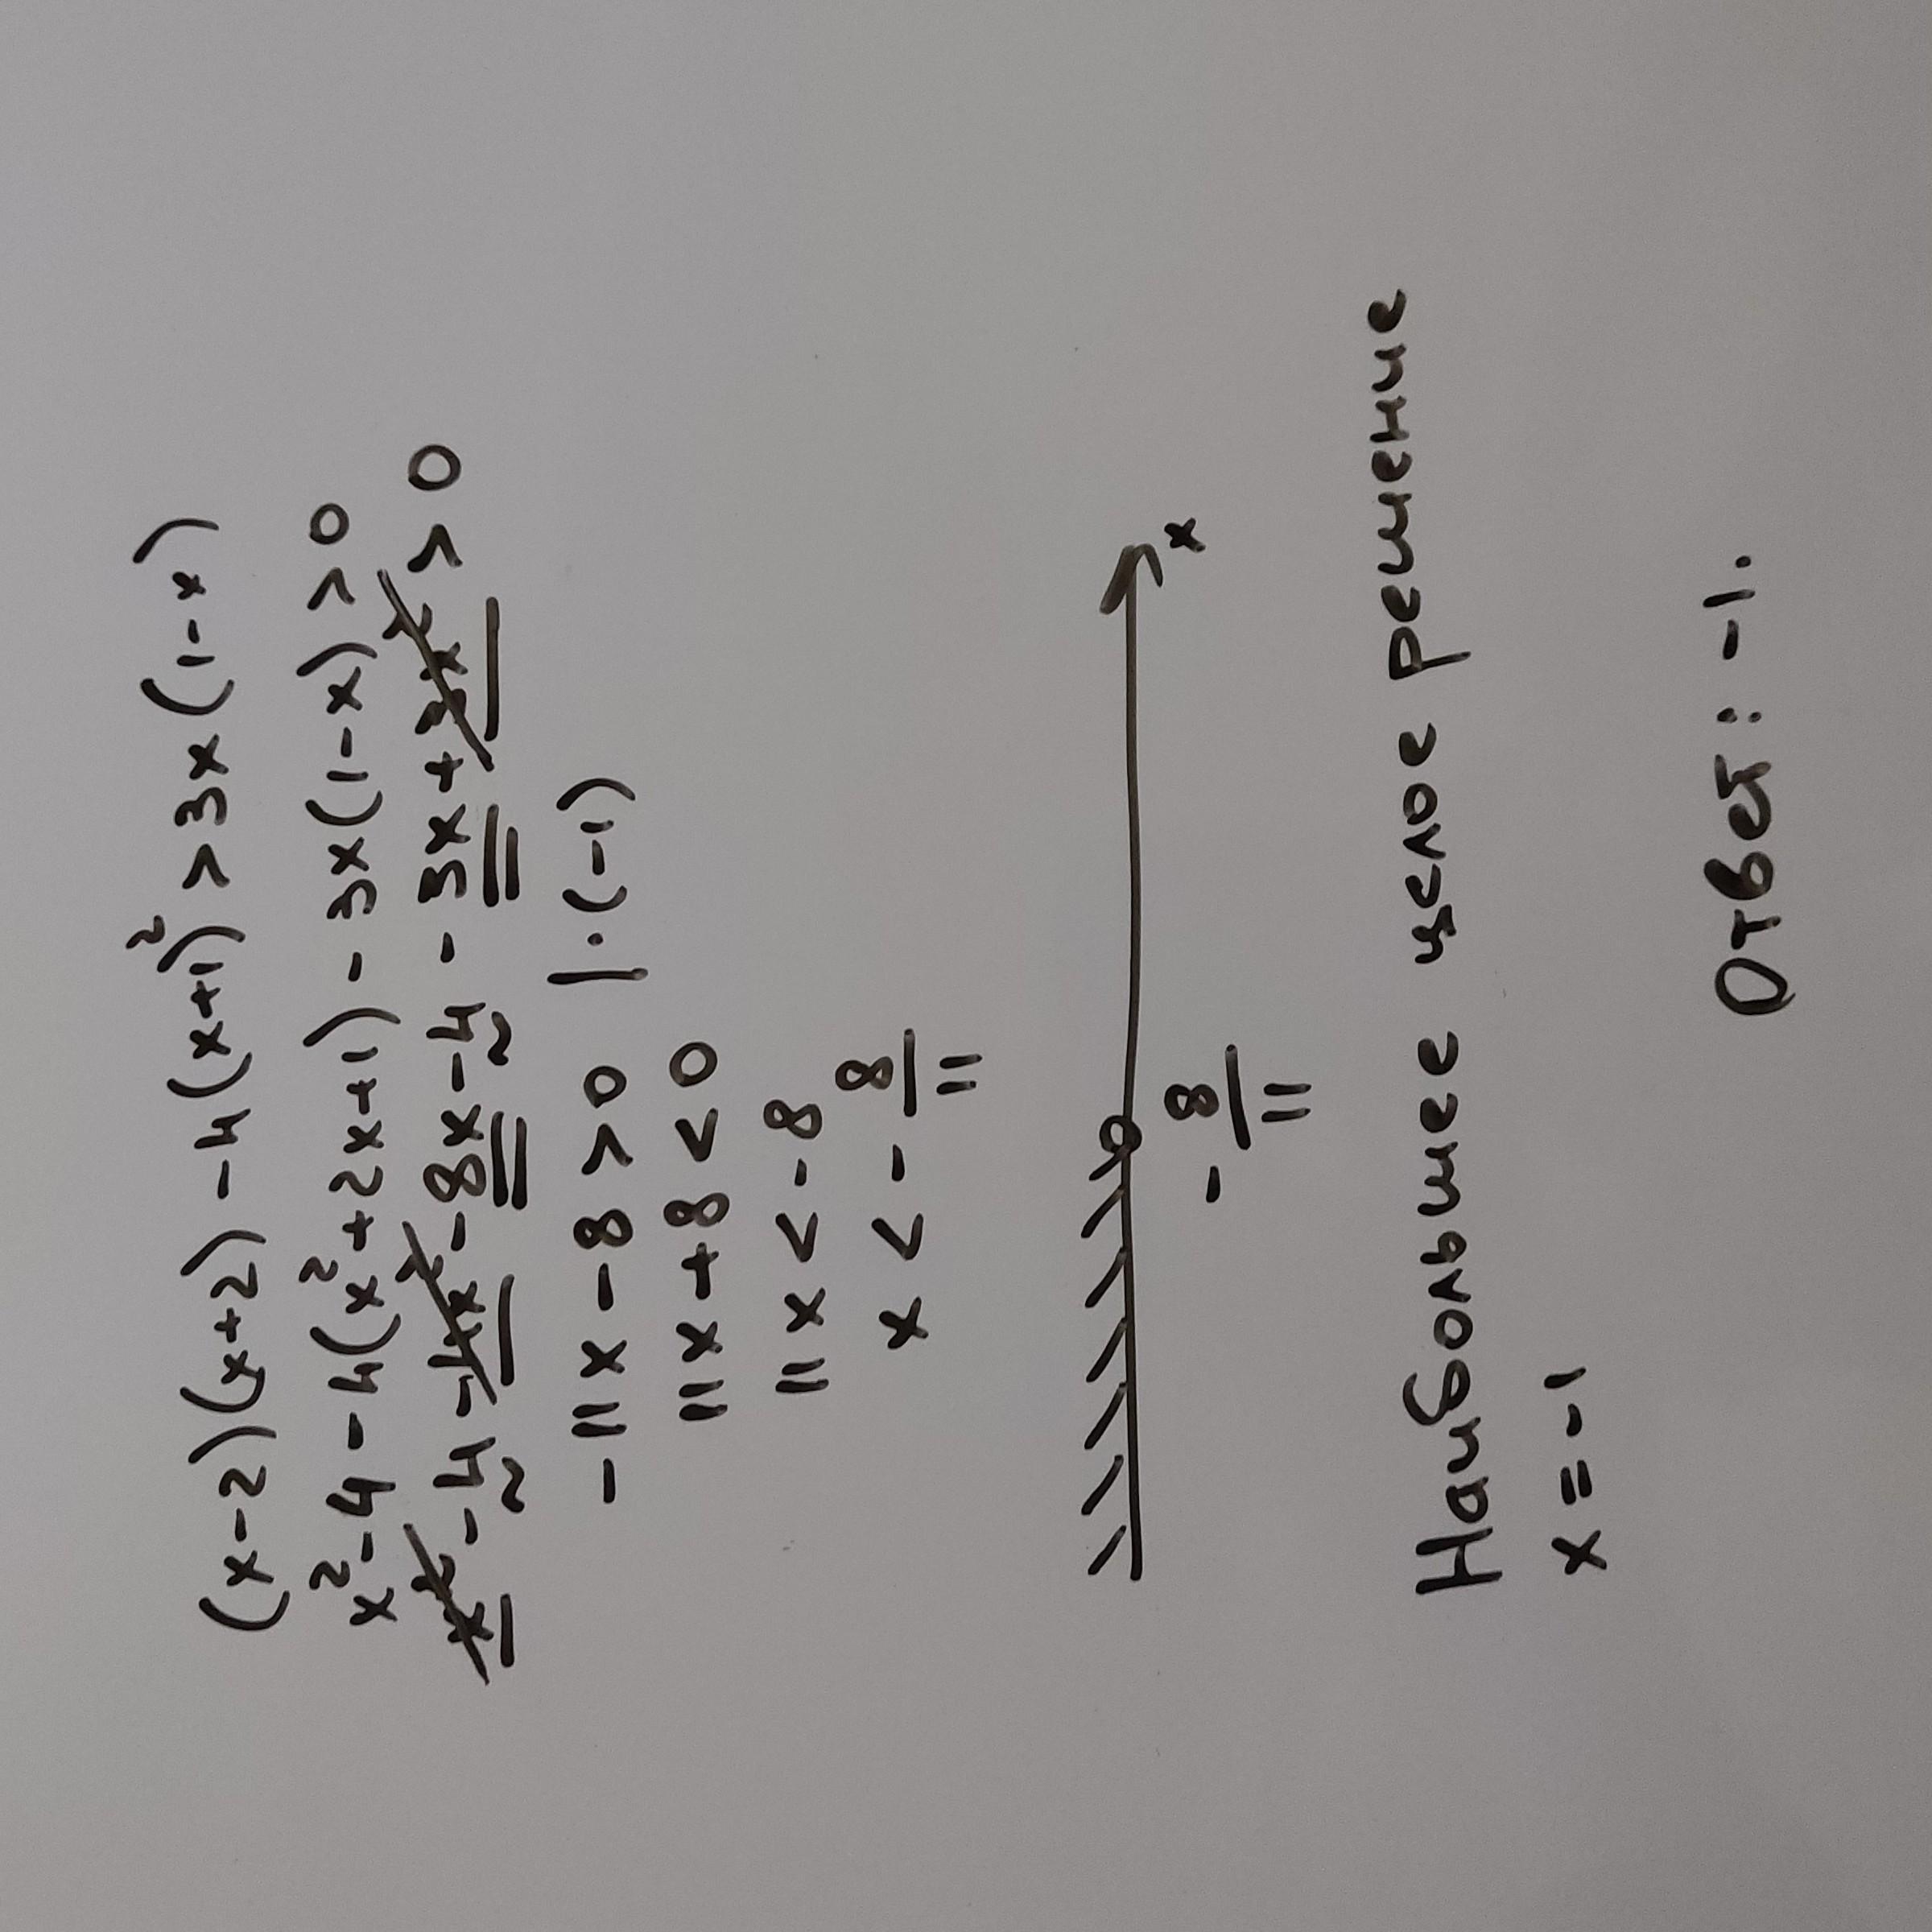 (x-2)(x+2)-4(x+1)²>3x(1-x)
x²-4-4(x²+2x+1)-3x(1-x)>0
x²-4-4x²-8x-4-3x+3x²>0
-11x-8>0 |·(-1)
11x+8<0
11x<-8
x<-8/11
x
-8/11
Наибольшее целое решение
x=-1
Ответ: -1.